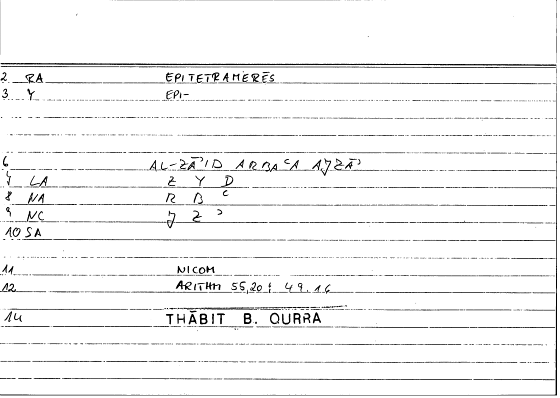 2 RA EPITETRAMERĒS
3 Y EPI-
6 AL-ZĀʾID ARBAʿA AJZĀʾ
7 LA Z Y D
8 NA R B ʿ
9 NC J Z ʾ
10 SA
11 NICOM
12 ARITHM 55,20 : 49.16
14 THĀBIT B. QURRA